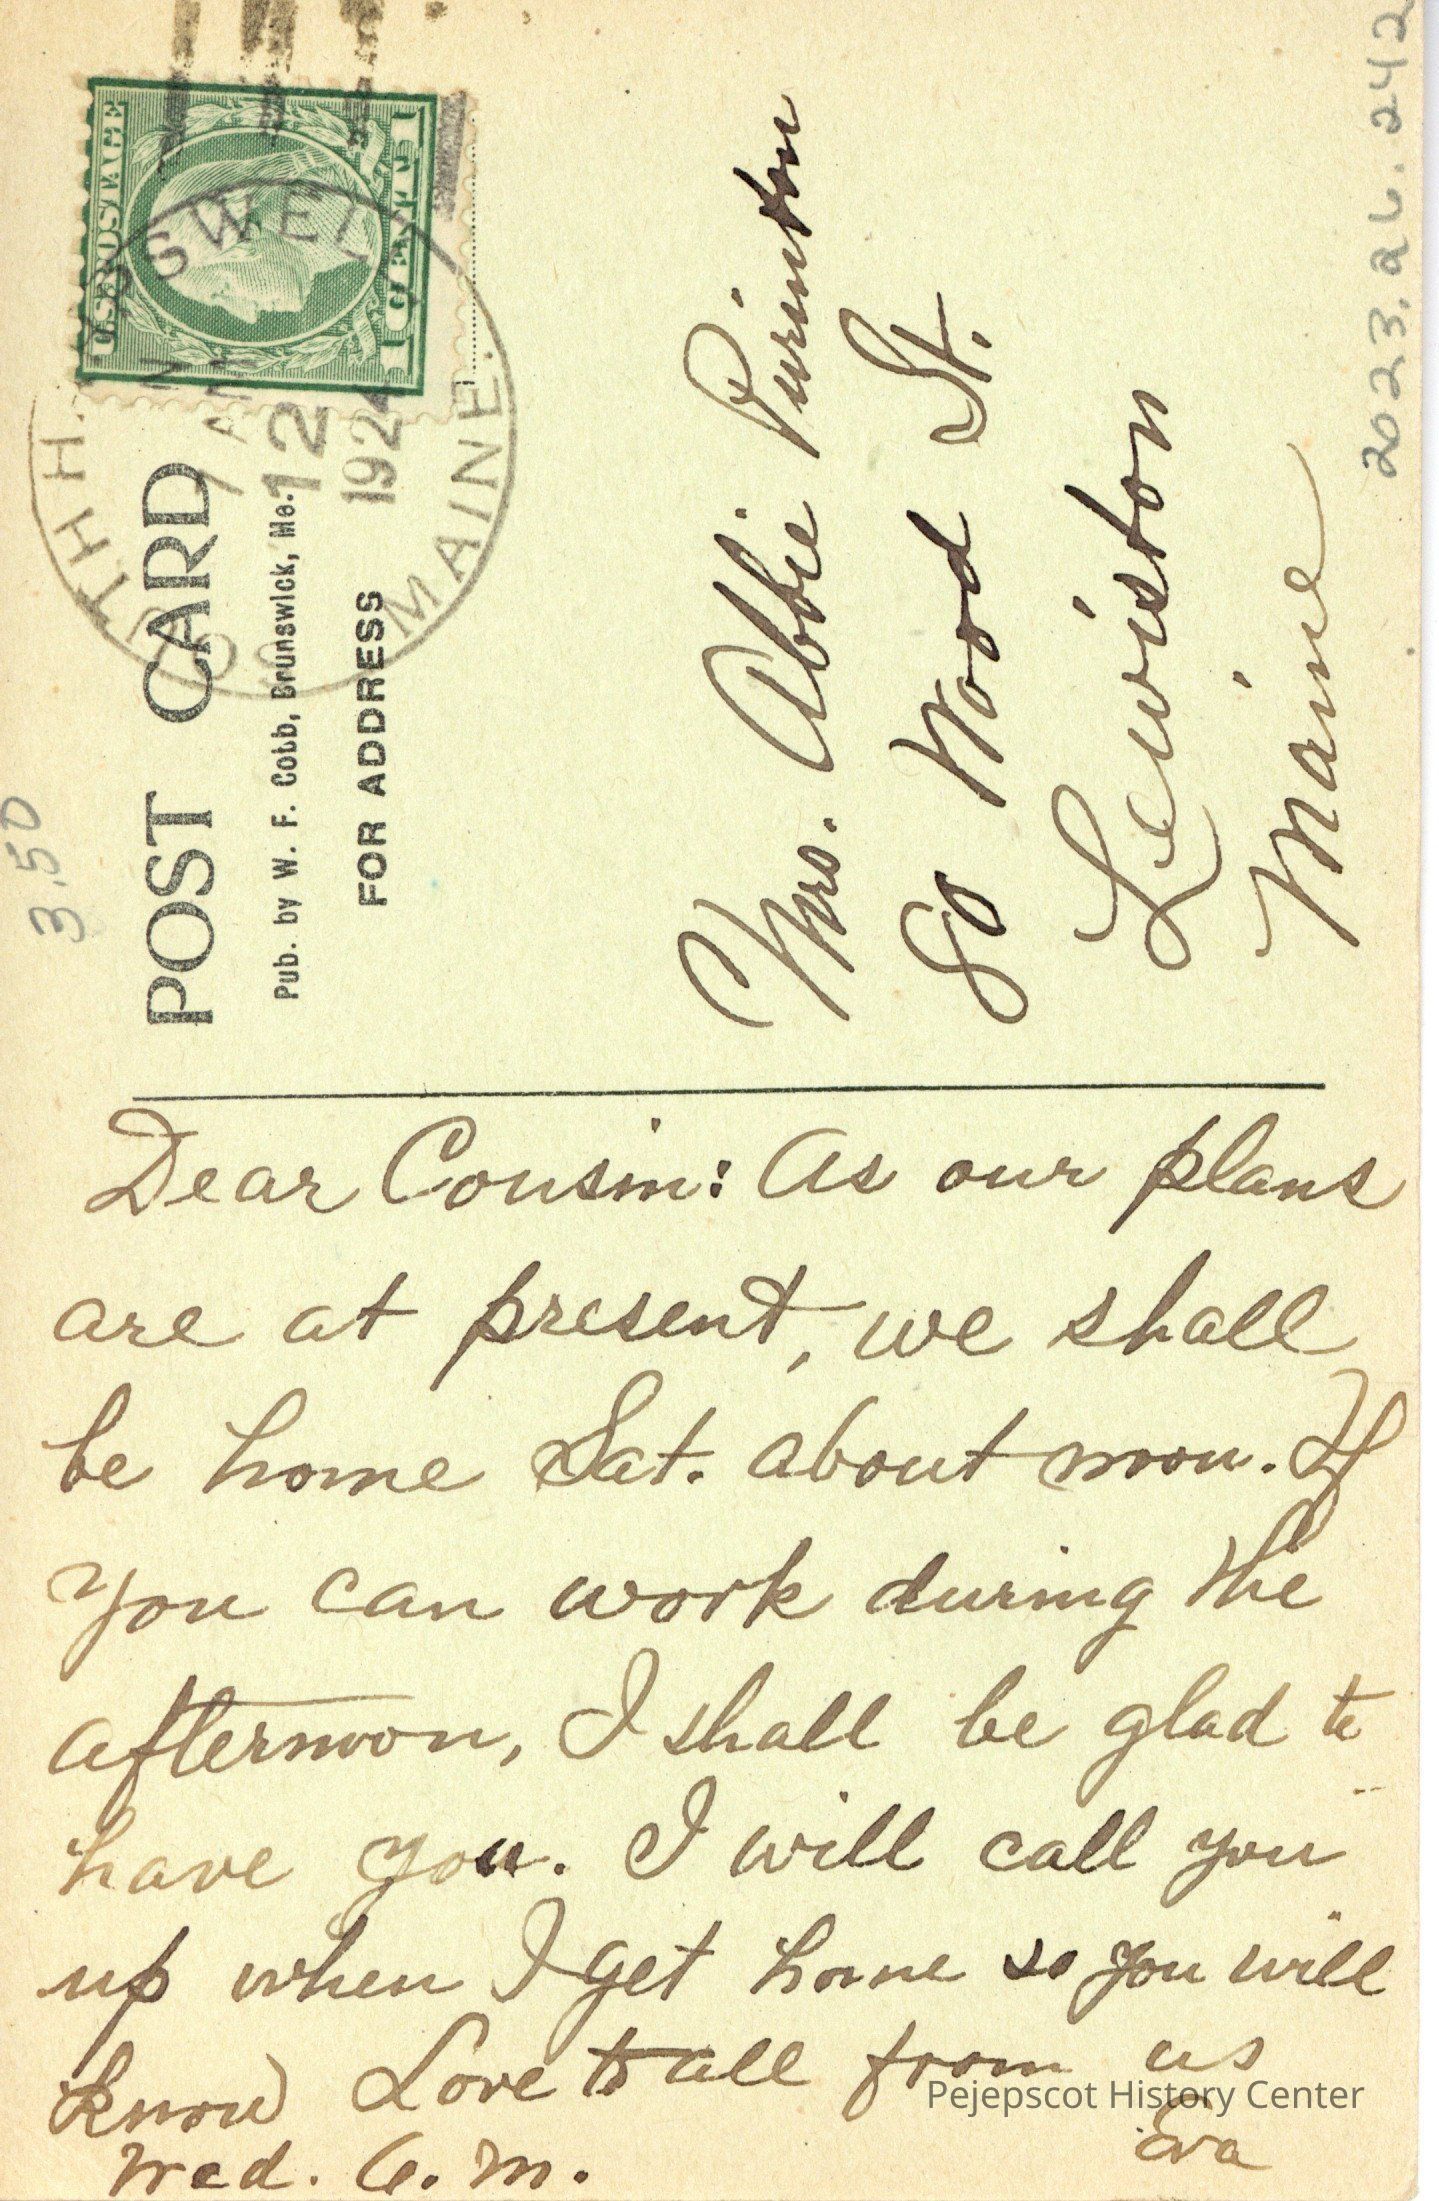 3.50
POST CARD
Pub. by W. F. Cobb, Brunswick, Me.
FOR ADDRESS
U.S. POSTAGE
1 CENT 1
SO. HARPSWELL
MAINE.
7 AM
12
192
Mrs. Abbie Purinton
80 Wood St.
Lewiston
Maine
2023.26.242
Dear Cousin: As our plans
are at present, we shall
be home Sat. about noon. If
you can work during the
afternoon, I shall be glad to
have you. I will call you
up when I get home so you will
know Love to all from us
Eva
Wed. A. M.
Pejepscot History Center